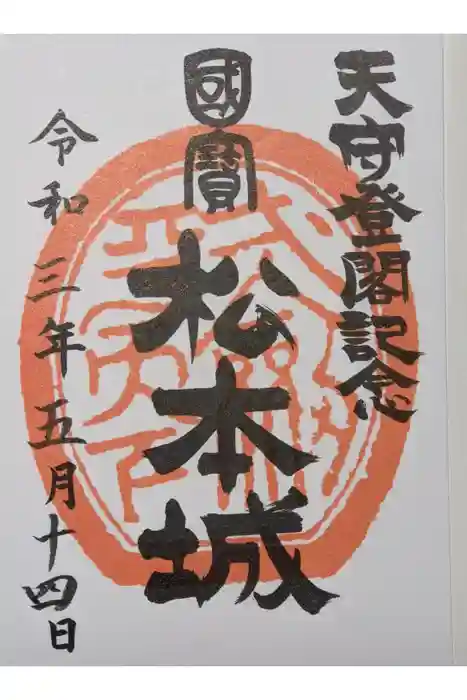 天守登閣記念
國寳
松本城
令和三年五月十四日